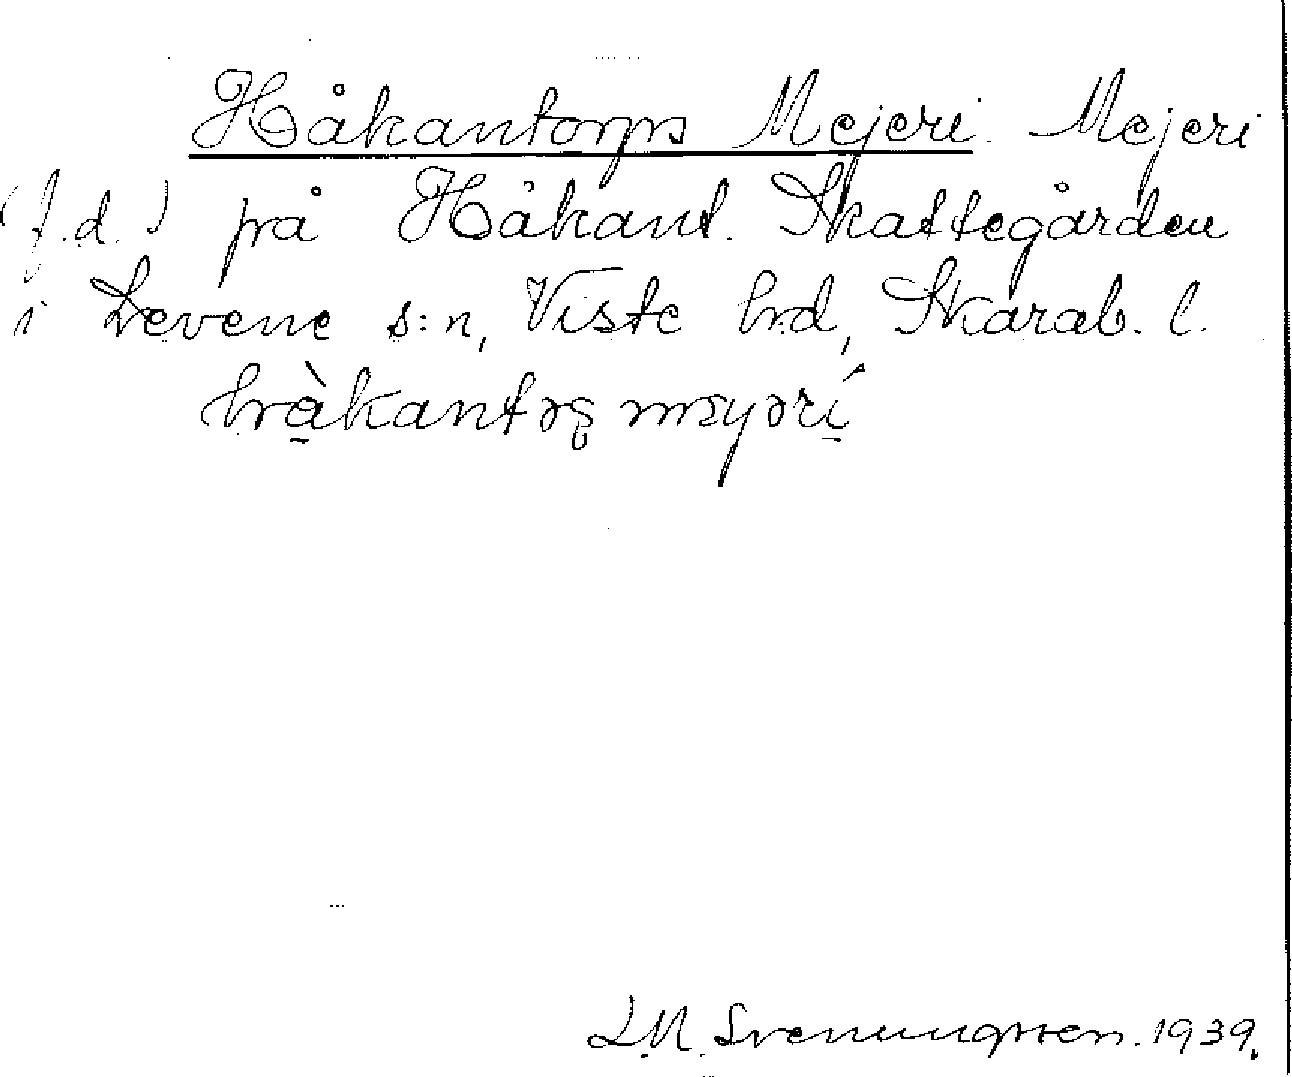 Håkantorps Mejeri. Mejeri
(f.d.) på Håkant. Skattegården
i Levene s:n, Viste hrd, Skarab. l.
L.M. Svenungsson. 1939.